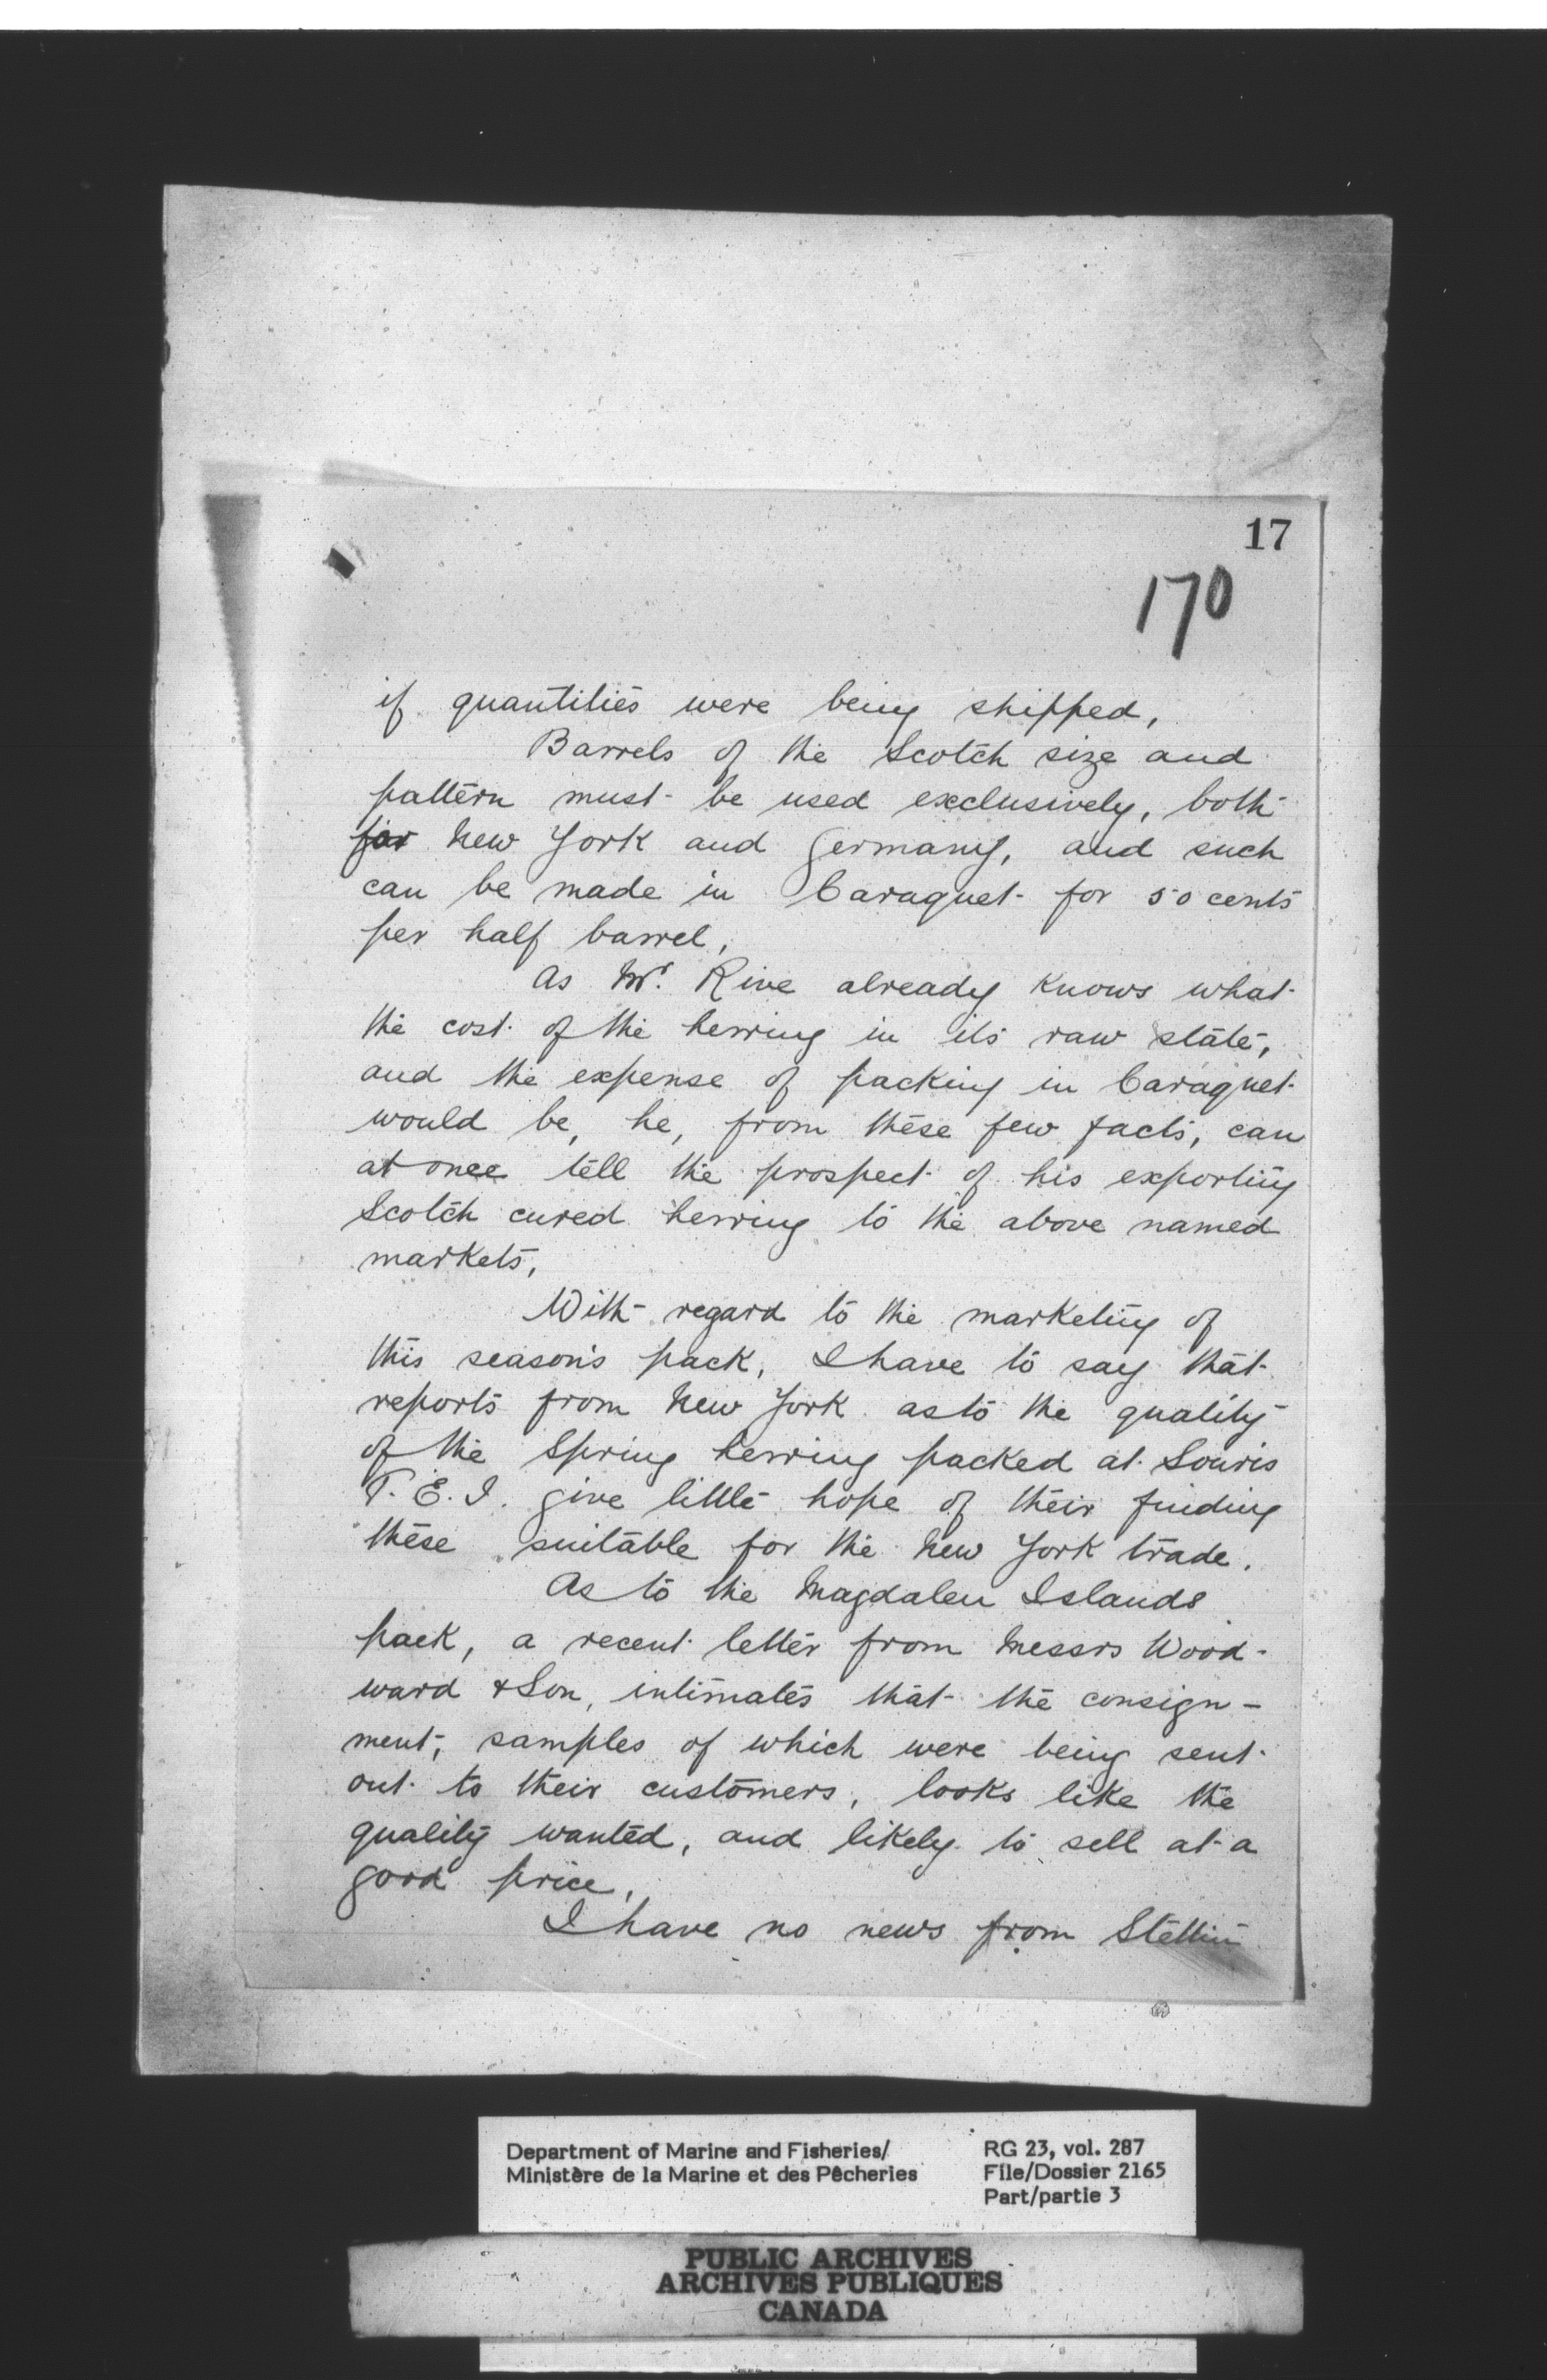 17
170
if quantities were being shipped,
Barrels of the Scotch size and
pattern must be used exclusively, both
for New York and Germany, and such
can be made in Caraquet for 50 cents
per half barrel,
As Mr. Rive already knows what
the cost of the herring in its raw state,
and the expense of packing in Caraquet
would be, he, from these few facts, can
at once tell the prospect of his exporting
Scotch cured herring to the above named
markets,
With regard to the marketing of
this season's pack, I have to say that
reports from New York as to the quality
of the Spring herring packed at Souris
P.E.I. give little hope of their finding
these suitable for the New York trade.
As to the Magdalen Islands
pack, a recent letter from Messrs Wood-
ward & Son, intimates that the consign-
ment, samples of which were being sent
out to their customers, looks like the
quality wanted, and likely to sell at a
good price,
I have no news from Stettin
Department of Marine and Fisheries/
Ministère de la Marine et des Pêcheries
RG 23, vol. 287
File/Dossier 2165
Part/partie 3
PUBLIC ARCHIVES
ARCHIVES PUBLIQUES
CANADA